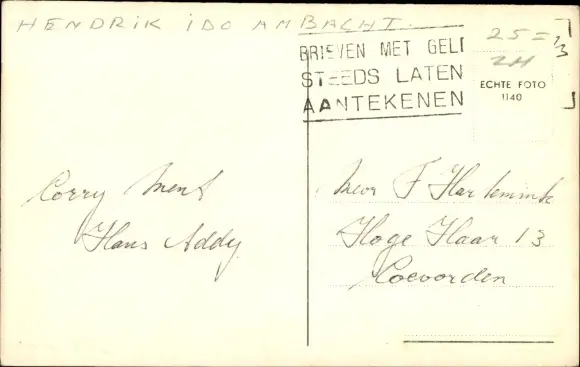 HENDRIK IDO AMBACHT.
25 =
ZH
1/3
BRIEVEN MET GELD
STEEDS LATEN
AANTEKENEN
ECHTE FOTO
1140
Corry Ment
Hans Addy
Mevr F Harlemink
Hoge Haar 13
Coevorden